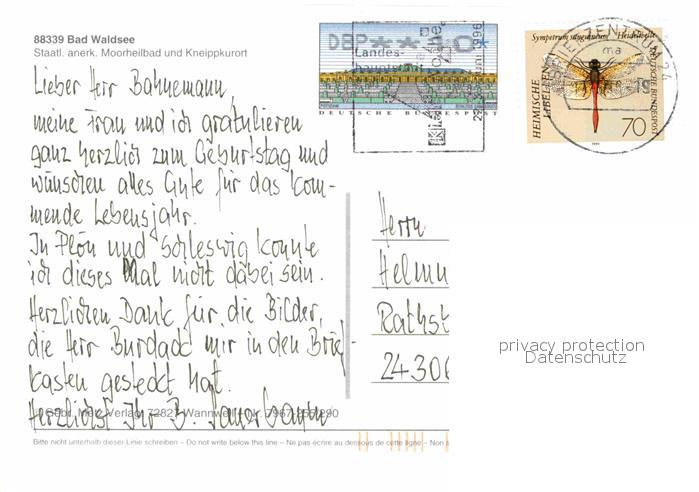 88339 Bad Waldsee
Staatl. anerk. Moorheilbad und Kneippkurort
Lieber Herr Bahnemann,
meine Frau und ich gratulieren
ganz herzlich zum Geburtstag und
wünschen alles Gute für das kom-
mende Lebensjahr.
In Plön und Schleswig konnte
ich dieses Mal nicht dabei sein.
Herzlichen Dank für die Bilder,
die Herr Burdack mir in den Brief-
kasten gesteckt hat.
Herzlichst Ihr
Gebr. Metz Verlag, 72827 Wannweil · Nr. 7967-255/290
Bitte nicht unterhalb dieser Linie schreiben – Do not write below this line – Ne pas écrire au dessous de cette ligne – Non
DBP
Landes-
DEUTSCHE BUNDESPOST
Sympetrum sanguineum Heidelibelle
HEIMISCHE
LIBELLEN
DEUTSCHE BUNDESPOST
70
BRIEFZENTRUM 24
Herrn
Helmu
Raths
24306
privacy protection
Datenschutz